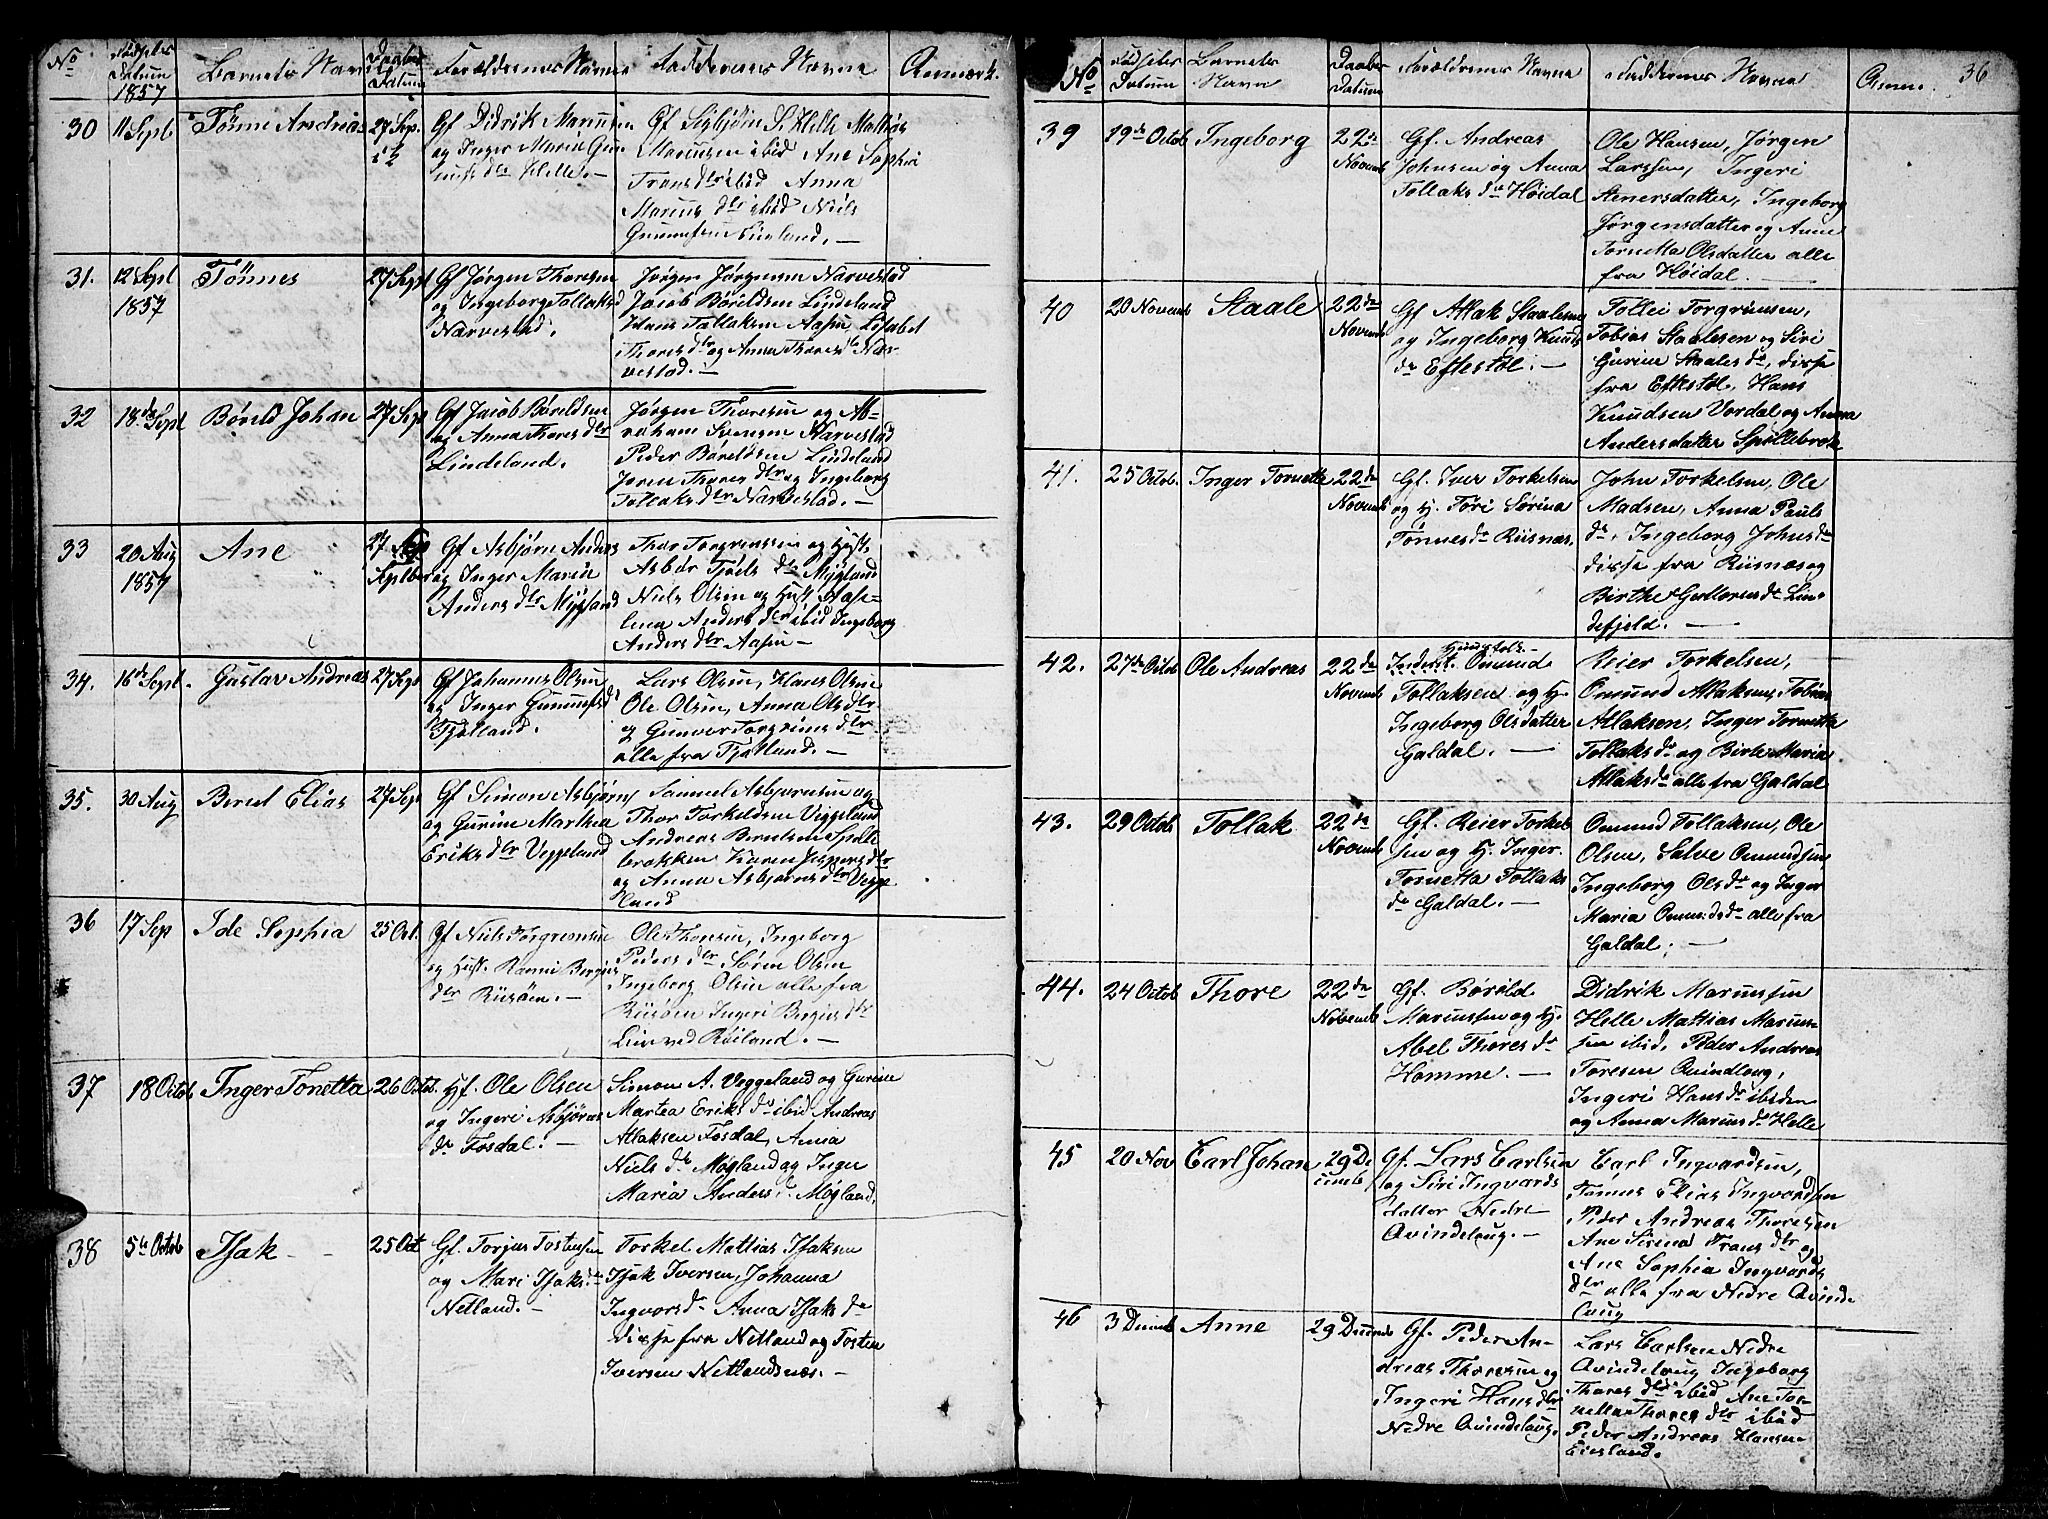 No.
Fødsels Datum 1857
Barnets Navn
Daabens Datum
Forældrenes Navne
Faddernes Navne
Anmærk.
30
11 Sept
Tønne Andreas
27 Sep.
Gf Didrik Marcusen
og Inger Marie Gun-
nufs dtr Helle.—
Gf Sigbjørn S. Helle Mathias
Marcusen ibid Ane Sophia
Frans dtr ibid Anna
Marcus dtr ibid Niels
Gunnufsen
31.
12 Sept
1857
Tønnes
27 Sept
Gf Jørgen Thoresen
og Ingeborg Tollaks d
Narvestad.
Jørgen Jørgensen Narvestad
Jacob Børildsen Lindeland
Hans Tollaksen Aasen, Lisabet
Thores dtr og Anna Thores dtr Nar-
vestad.—
32
18de Sept
Børild Johan
27 Sept
Gf Jacob Børildsen
og Anna Thores dtr
Lindeland.
Jørgen Thoresen og A-
braham Svensen Narvestad
Peder Børildsen Lindeland
Joren Thores dtr og Ingeborg
Tollaks dtr Narvestad.—
33
20 Aug
1857
Ane
27
Septbr
Gf Asbjørn Anders
og Inger Marie
Anders dtr Mygland
Thor Torgrimssen og Hust.
Asbør Tjøls dtr Mygland
Niels Olsen og Hust Aase-
lena Anders dtr ibid Ingeborg
Anders dtr Aasen—
34.
16de Sept.
Gustav Andreas
27 Sept
Gf Johannes Olsen
og Inger Gunnufs d
Fjotland.
Lars Olsen, Hans Olsen
Ole Olsen, Anna Ols dtr
og Gunvor Torgrims dtr
alle fra Fjotland.—
35.
30 Aug
Bernt Elias
27 Sept
Gf Simon Asbjørns
og Gurine Marthea
Eriks dtr Veggeland
Samuel Asbjørnsen og
Thor Torkeldsen Veggeland
Andreas Berntsen Spille
brokken Karen Jespers dtr
og Anna Asbjørns dtr Vegge
land
36
17 Sep
Ide Sophia
25 Oct.
Gf Niels Torgrimsen
og Hust. Rannei Bergius
dtr Riisøen.—
Ole Thoresen, Ingeborg
Peders dtr Søren Olsen
Ingeborg Olsen alle fra
Riisøen Ingeri Bergius dtr
Lien ved Røiland.—
37
18 Octob
Inger Tonetta
26 Octob.
Hf. Ole Olsen
og Ingeri Asbjørns
dr Fosdal.—
Simon A. Veggeland og Gurine
Martea Eriks dr ibid Andreas
Atlaksen Fosdal, Anna
Niels dr Møgland og Inger
Maria Anders d. Møgland.
38
5te Octob
Isak - -
25 Oct
Gf. Torjus Tostensen
og Mari Isaks dr
Netland.—
Torkel Mathias Isaksen
Isak Iversen, Johanna
Ingvors dr Anna Isak dr
disse fra Netland og Tosten
Iversen Netlandsnæs.—
No
Fødselsr Datum
Barnets Navn
Daabens Datum
Forældrenes Navne
Faddernes Navne
Anm.
36
39
19de Octob
Ingeborg
22de
Novemb
Gf. Andreas
Johnsen og Anna
Tollaks dr Høidal
Ole Hansen, Jørgen
Larssen, Ingeri
Stenersdatter, Ingeborg
Jørgensdatter og Anne
Tornetta Olsdatter alle
fra Høidal.—
40
20 Novemb
Staale
22de
Novemb
Gf Atlak Staalesen
og Ingeborg Knuds
dr Eftestøl.—
Tollei Torgrimsen,
Tobias Staalesen og Siri
Gurine Staales dr, disse
fra Eftestøl, Hans
Knudsen Vordal og Anna
Andersdatter Spillebrok
41.
25 Octob.
Inger Tornette
22de
Novemb
Gf. Iver Torkelsen
og H. Tøri Sørina
Tønnes dr Riisnæs.
John Torkelsen, Ole
Madsen, Anna Pauls
dr, Ingeborg Johns dr
disse fra Riisnæs og
Birthe Guttorms dr Lin-
defjeld.—
42.
27de Octob
Ole Andreas
22de
Novemb
Inderst. Omund
Tollaksen og H.
Ingeborg Olsdatter
Galdal.—
Reier Torkelsen,
Omund Atlaksen, Tobias
Atlaksen, Inger Tornette
Tollaks dr og Birte Maria
Atlaks dr alle fra Galdal
43.
29 Octob
Tollak
22de
Novemb
Gf. Reier Torkel
sen og H. Inger
Tornetta Tollaks
dr Galdal.—
Omund Tollaksen, Ole
Olsen, Salve Omundsen,
Ingeborg Ols dr og Inger
Maria Omunds dr alle fra
Galdal.—
44.
24 Octob
Thore
22de
Novemb
Gf. Børild
Marcussen og H.
Abel Thores dr
Homme.—
Didrik Marcussen
Helle Mattias Marcus-
sen ibid, Peder Andreas
Toresen Qvindloug,
Ingeri Hans dr ibiden
og Anna Marcus dr Helle
45
20 Nov
Carl Johan
29 De
cemb
Gf. Lars Carlsen
og Siri Ingvards
datter Nedre
Qvindeloug.—
Carl Ingvardsen,
Tønnes Elias Ingvardsen
Peder Andreas Thoresen
Ane Sirina Frans dtr og
Ane Sophia Ingvards
dtr alle fra Nedre Qvinde
loug
46
3 Decemb
Anne
29 Decemb
Gf. Peder An-
dreas Thoresen og
Ingeri Hans dtr
Nedre Qvindeloug.
Lars Carlsen Nedre
Qvindeloug Ingeborg
Thores dtr ibid Ane Tor-
netta Thores dtr ibid
Peder Andreas Hansen
Eiesland.